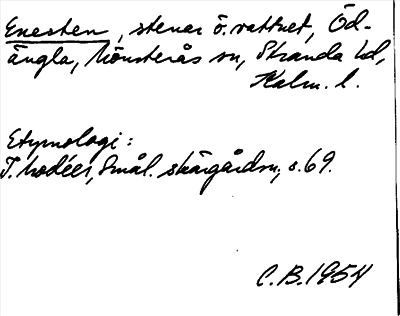 Enesten, stenar ö. vattnet, Öd-
ängla, Mönsterås sn, Stranda hd,
Kalm. l.
Etymologi:
I. Modéer, Smål. skärgårdsn., s. 69.
C.B. 1954